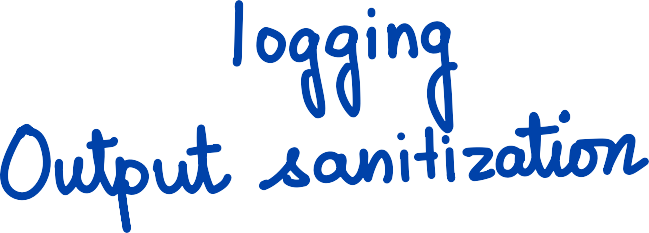 logging
Output sanitization